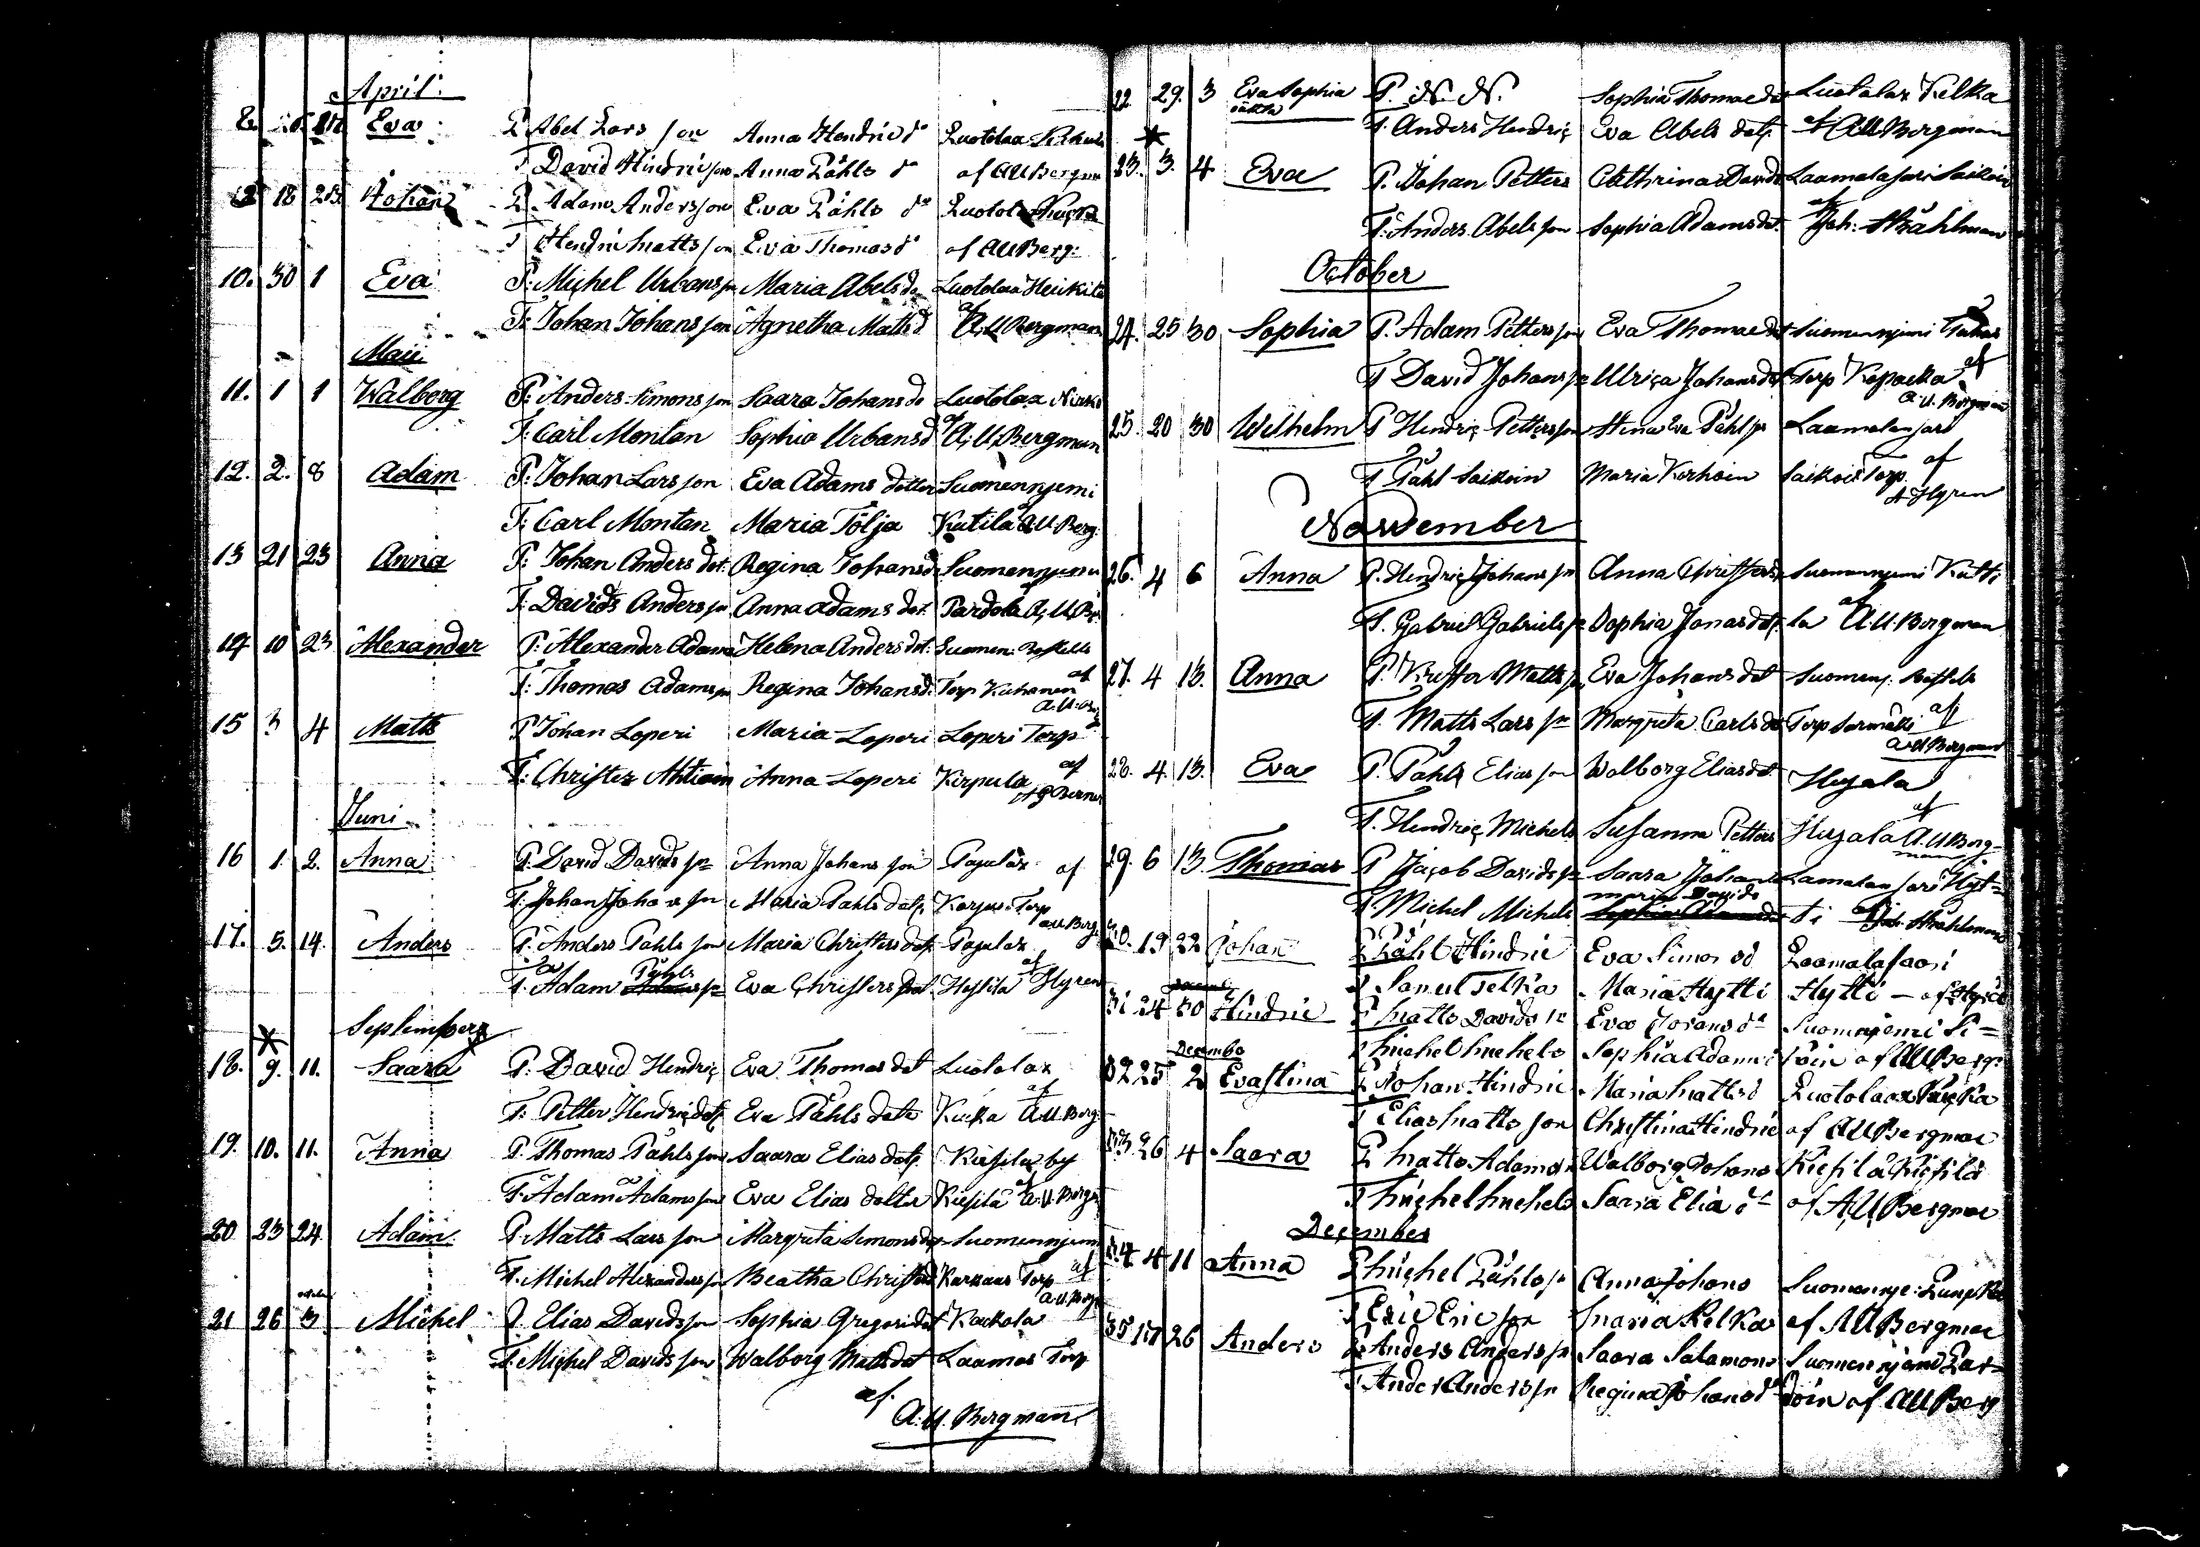 April.
8. Eva P. Abel Lars son Anna Hendric dr Luotolax
T. David Hindricson Anna Påhls dr af AU Bergman
18 Johan P. Adam Andersson Eva Påhls dr Luotola
T Hendric Matts son Eva Thomas dr af AU Berg:
10. 30 1 Eva P. Michel Urbans son Maria Abels do Luotolax Heikila
T: Johan Johans son Agnetha Matts d af A.U Bergman
Maii
11. 1 1 Walborg P: Anders Simons son Saara Johans do Luotolax
T. Carl Montan Sophia Urbans d af A.U Bergman
12. 2. 8 Adam P: Johan Lars son Eva Adams dotter Suomennjemi
T: Carl Montan Maria Tölja Kutila A.U. Berg:
13 21 23 Anna P: Johan Anders dot. Regina Johans d Suomennjemi
T: Davids Anders son Anna Adams dot. Pardola A.U. Be
14 10 23 Alexander P: Alexander Adams Helena Anders dot: Suomen:
T: Thomas Adams son Regina Johans d. Torp Kuhanen af A.U.
15 3 4 Matts P Johan Loperi Maria Loperi Loperi Torp
T: Christer Ahtiain Anna Loperi Kirpula af
Juni
16 1. 2. Anna P. David Davids son Anna Johans son Papulax af
T. Johan Johans son Maria Påhls dotr. Korpus Torp AU Berg.
17. 5. 14. Anders P. Anders Påhls son Maria Christers dotr. Papulax
T. Adam Påhls son Eva Christers dot. Heskila af Hyren
September
18. 9. 11. Saara P. David Hendric Eva Thomas dot Luotolax
T. Petter Hendric Eva Påhls dotr Kiukka af A.U. Berg.
19. 10. 11. Anna P. Thomas Påhls son Saara Elias dotr. Kiesilä by
T. Adam Adams son Eva Elias dotter Kiesilä af A.U. Bergm
20 23 24. Adam P. Matts Lars son Margreta Simons do Suomennjemi
T. Michel Alexanders son Beatha Christers Karkaus Torp af A.U. Berg
21 26 october 3 Michel P. Elias Davids son Sophia Gregori dot Kackola
T. Michel Davids son Walborg Matts dot Laamas Torp
af.
A.U. Bergman
22 29. 3 Eva Sophia oäkta P. N. N. Sophia Thomae do Luotolax Kelka
T. Anders Hendric Eva Abels dotr. af AU Bergman
23. 3. 4 Eva P. Johan Petters Cathrina Davids Laamalasari Saikoin
T. Anders Abels son Sophia Adams dot. af Joh: Stråhlman
October
24. 25 30 Sophia P. Adam Petters son Eva Thomae dot Suomennjemi
T David Johans son Ulrica Johans dot Torp Kopacka af A.U. Bergman
25. 20 30 Wilhelm P Hendric Petters son Stina Eva Påhls Laamalansari
T Påhl Saikoin Maria Korhoin Saikois Torp. af A Hyren
November
26. 4 6 Anna P. Hendric Johans son Anna Christers Suomennjemi Kutti
T. Gabriel Gabriels son Sophia Jonas dotr. la af A.U. Bergman
27. 4 13. Anna P. Kristter Matts son Eva Johans dot Suomenj.
T. Matts Lars son Margreta Carls do Torp Sarmäki af A.U Bergman
28. 4. 13. Eva P. Påhl Elias son Walborg Elias dot. Hujala
T. Hendric Michels Susanna Petters Hujala af A.U Bergman
29. 6 13. Thomas P Jacob Davids son Saara Johans Lamalan sari Hyt=
T. Michel Michels Maria Davids ti af Joh. Stråhlman
30. 19 22 Johan P Påhl Hindric Eva Simos dd Laamalasaari
T Samul Telkä Maria Hytti Hytti – af Hyrén
31 24 30 Hindric P Matts Davids sn Eva Johans dr Suomenjemi Si=
T Michel Michels Sophia Adami roin af AU Berg:
32 25 Decembr 2 Evastina P Johan Hindric Maria Matts d Luotolax Kiucka
T Elias Matts son Christina Hindric af AU Bergman
33 26 4 Saara P Matts Adams n Walborg Johans Kiesilä Kiesilä
T Michel Michels Saara Elia dr af AU Bergman
December
34 4 11 Anna P Michel Påhls sn Anna Johans Suomennje:
T Eric Eric son Maria Kelka af AU Bergman
35 17 26 Anders P Anders Anders sn Saara Salamons Suomennjemi Par=
T Anders Anders sn Regina Johans dr doin af AU Berg